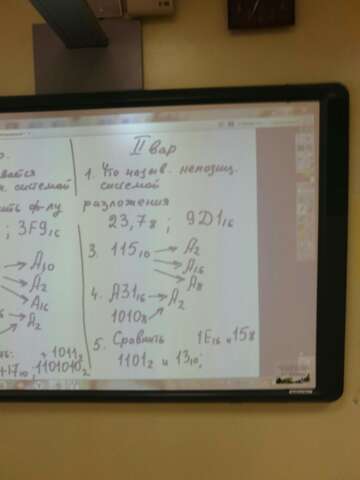 р.
вается
системой
ить ф-лу
; 3F9₁₆
A₁₀
A₂
A₁₆
A₂
+ 1011₂
+17₁₀ ; 1101010₂
II вар
1. Что назыв. непозиц.
системой
разложения
23,7₈ ; 9D1₁₆
3. 115₁₀ → A₂
→ A₁₆
→ A₈
4. A31₁₆ → A₂
1010₈ →
5. Сравнить 1E₁₆ и 15₈
1101₂ и 13₁₀;